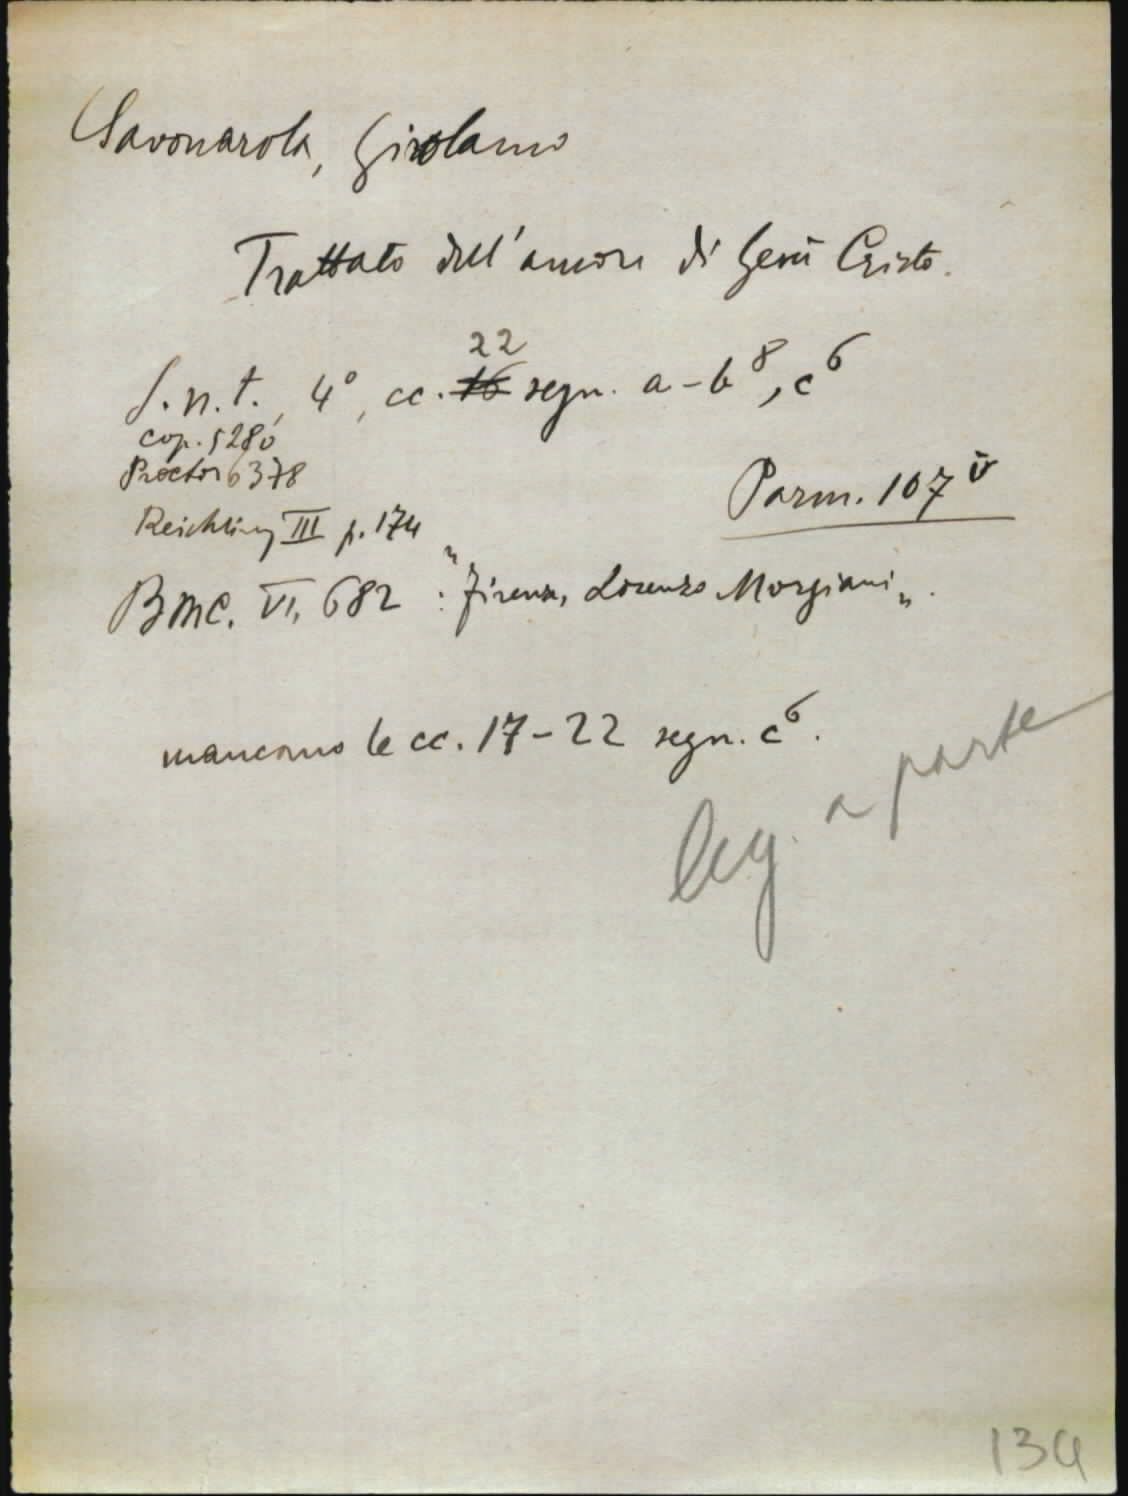 Savonarola, Girolamo
Trattato dell'amore di Gesù Cristo.
S.n.t., 4°, cc. 16 22 segn. a-b⁸, c⁶
Cop. 5280
Proctor 6378
Reichling III p. 174
Parm. 107 v̈
BMC. VI, 682 : "Firenze, Lorenzo Morgiani".
mancano le cc. 17-22 segn. c⁶.
leg. a parte
134